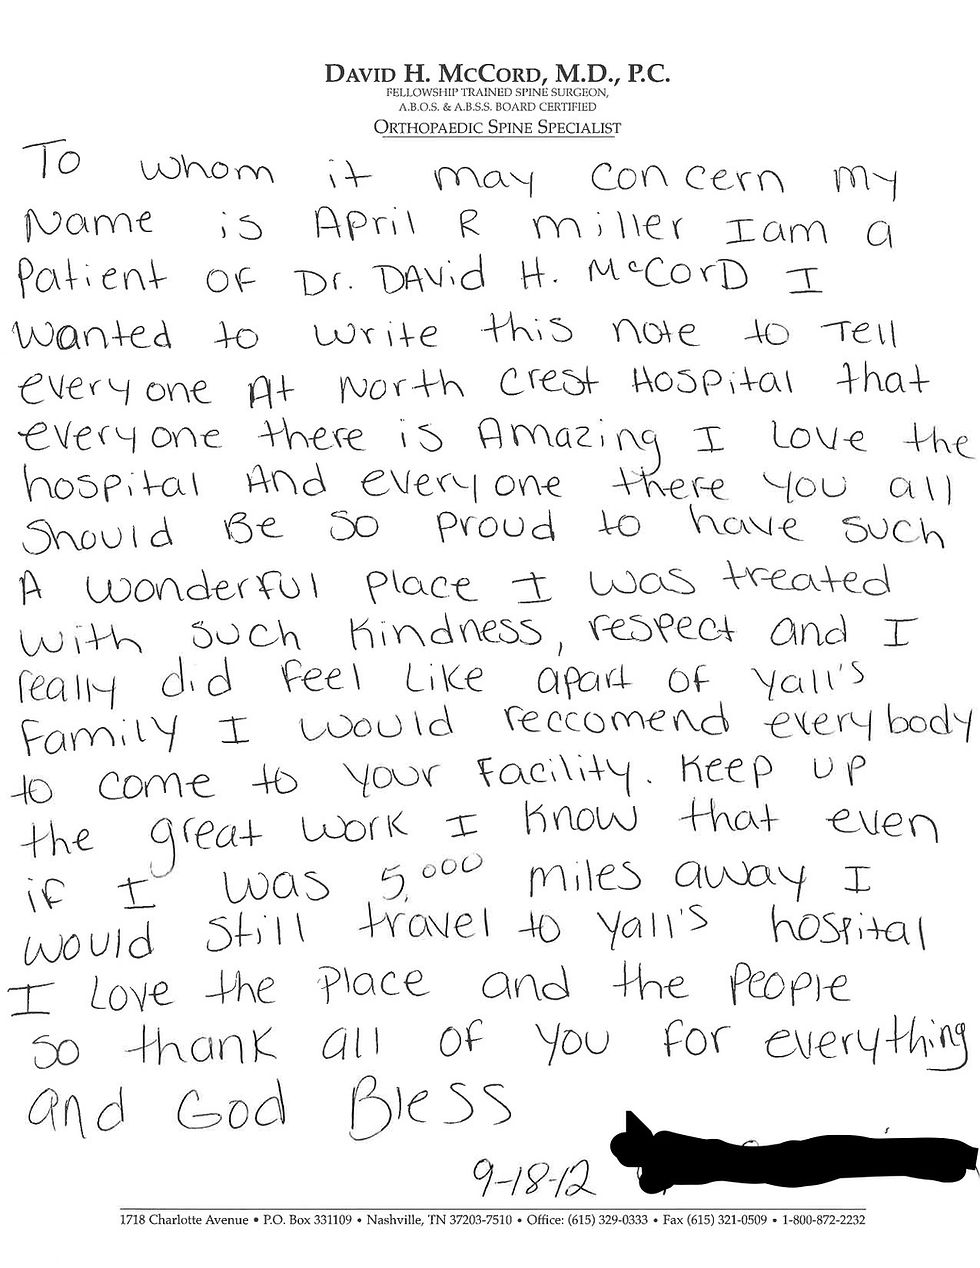 DAVID H. MCCORD, M.D., P.C.
FELLOWSHIP TRAINED SPINE SURGEON,
A.B.O.S. & A.B.S.S. BOARD CERTIFIED
ORTHOPAEDIC SPINE SPECIALIST
To whom it may concern my
Name is April R miller I am a
Patient of Dr. DAVID H. McCorD I
wanted to write this note to Tell
everyone At North Crest Hospital that
everyone there is Amazing I Love the
hospital And everyone there you all
Should Be so proud to have such
A wonderful Place I was treated
with such Kindness, respect and I
really did feel Like apart of yall's
family I would reccomend everybody
to come to your Facility. Keep up
the great work I know that even
if I was 5,000 miles away I
would still travel to yall's hospital
I Love the Place and the People
so thank all of you for everything
and God Bless
9-18-12
1718 Charlotte Avenue • P.O. Box 331109 • Nashville, TN 37203-7510 • Office: (615) 329-0333 • Fax (615) 321-0509 • 1-800-872-2232